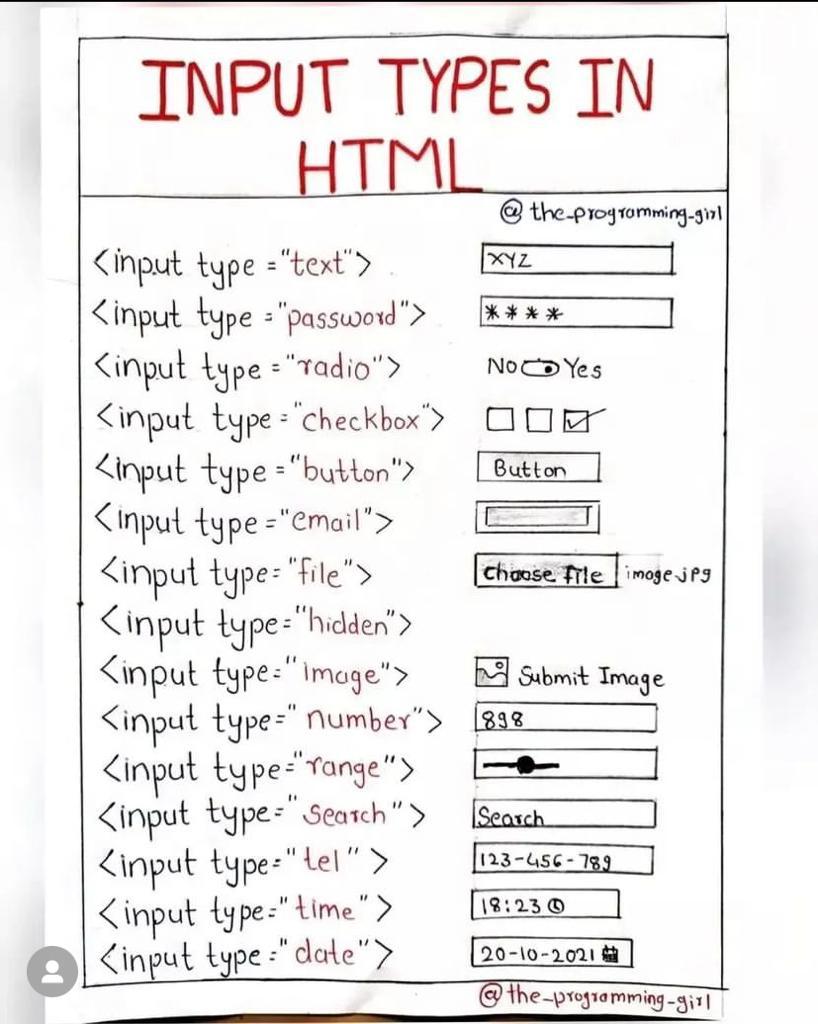 INPUT TYPES IN
HTML
@the_programming_girl
<input type ="text"> XYZ
<input type ="password"> ****
<input type ="radio"> No Yes
<input type ="checkbox">
<input type ="button"> Button
<input type ="email">
<input type ="file"> Choose File image.jpg
<input type ="hidden">
<input type ="image"> Submit Image
<input type =" number"> 898
<input type ="range">
<input type =" Search"> Search
<input type =" tel" > 123-456-789
<input type ="time"> 18:23
<input type =" date"> 20-10-2021
@the_programming_girl